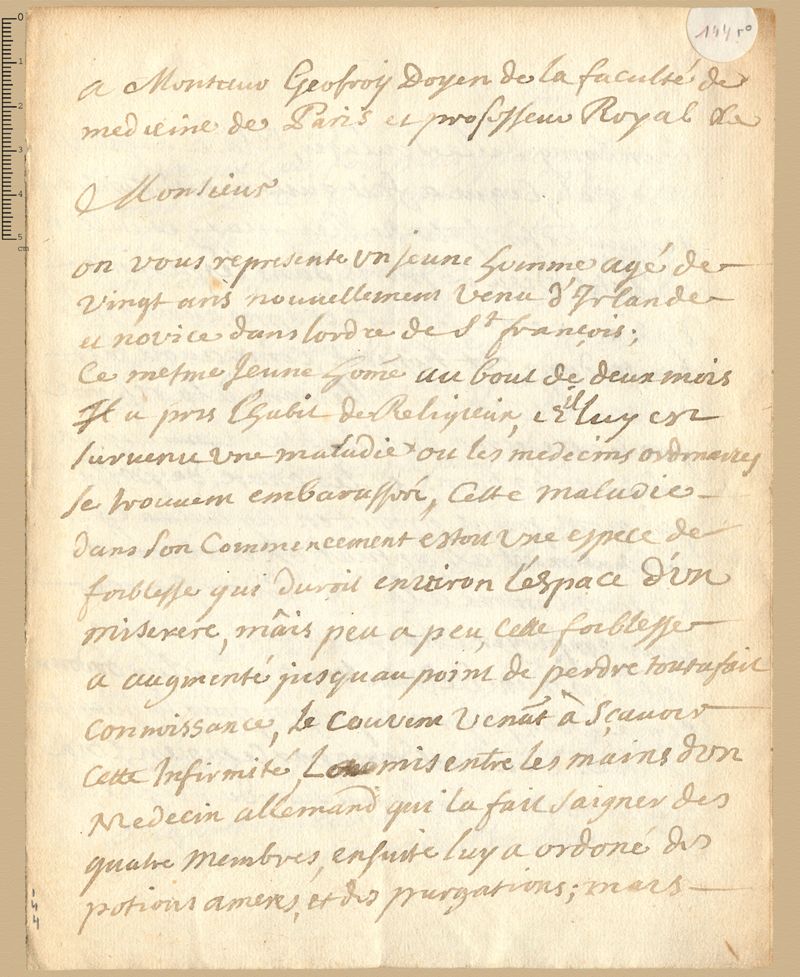 144 r°
A Monsieur Geofroij Doyen de la faculté de
medicine de Paris et professeur Royal &c
Monsieur
on vous represente un jeune homme agé de
vingt ans nouvellement venu d'Irlande
et novice dans lordre de St françois;
Ce mesme Jeune home au bout de deux mois
Il a pris l'habit de Religieux, il luy est
survenu une maladie ou les medecins ordinaires
se trouvent embarassés, Cette maladie
dans son Commencement estoit une espece de
foiblesse qui duroit environ l'espace d'un
miserere, mais peu a peu, cette foiblesse
a augmenté jusquau point de perdre toutafait
connoissance, le couvent venant à sçavoir
cette Infirmité, mis entre les mains d'un
Medecin allemand qui la fait saigner des
quatre membres, ensuite luy a ordoné des
potions ameres, et des purgations; mais
144
0
1
2
3
4
5
cm